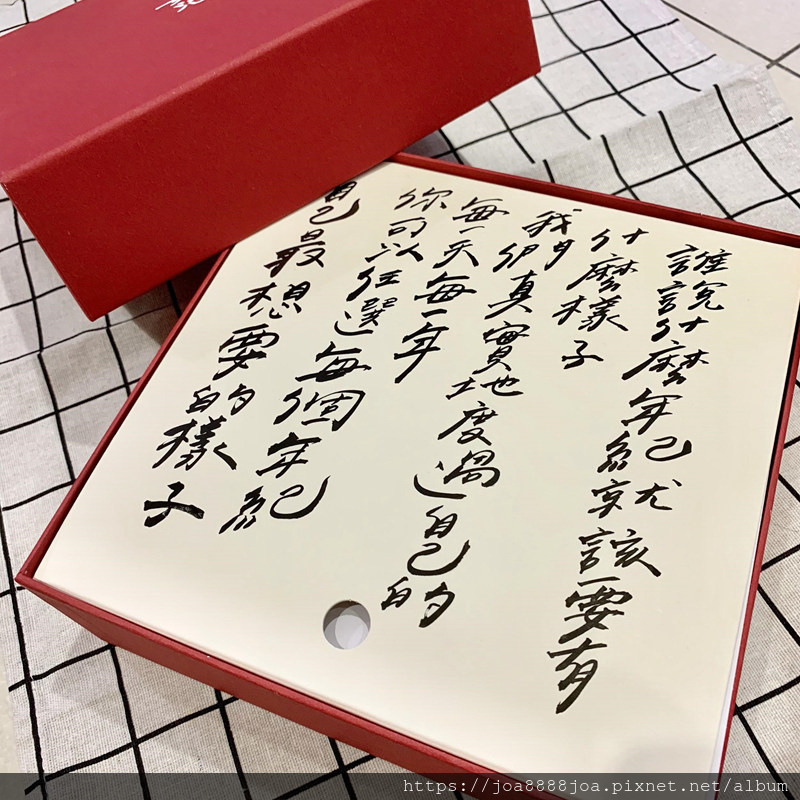 誰說什麼年紀就該要有
什麼樣子
我們真實地度過自己的
每一天每一年
你可以任選每個年紀
自己最想要的樣子
https://joa8888joa.pixnet.net/album